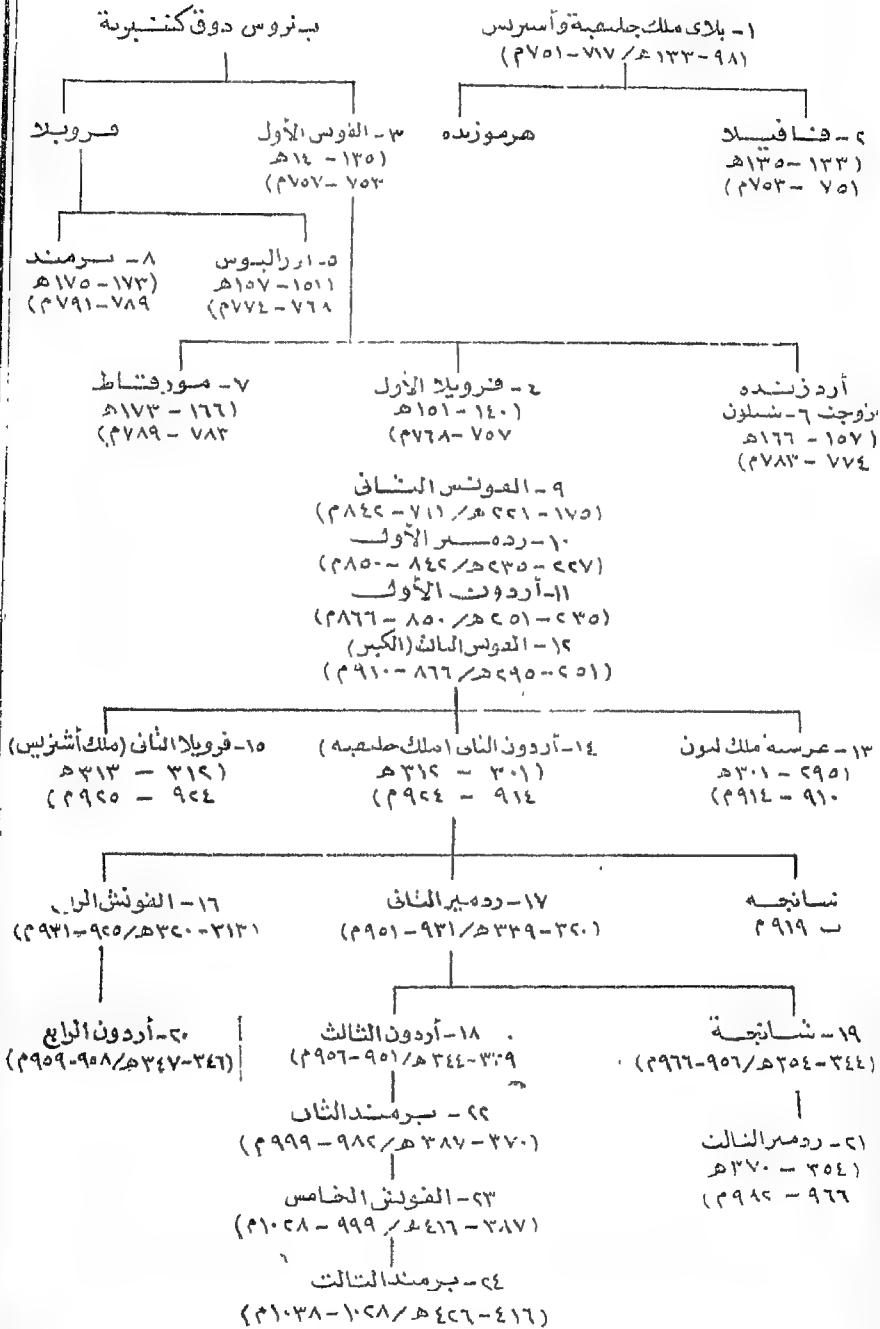 ١- بلاى ملك جليقية وأسترس
(٩٨-١٣٣ هـ / ٧١٧-٧٥١م)
بتروس دوق كنتبرية
٢- فافيلا
(١٣٣-١٣٥هـ
٧٥١-٧٥٣م)
هرموزنده
٣- الفونس الأول
(١٣٥-١٤٠هـ
٧٥٣-٧٥٧م)
فرويلا
٥- اررالبوس
(١٥١-١٥٧هـ
٧٦٨-٧٧٤م)
٨- برمند
(١٧٣-١٧٥هـ
٧٨٩-٧٩١م)
أردزنده
زوجت ٦- شيلون
(١٥٧-١٦٦هـ
٧٧٤-٧٨٣م)
٤- فرويلا الأول
(١٤٠-١٥١هـ
٧٥٧-٧٦٨م)
٧- مورقاط
(١٦٦-١٧٣هـ
٧٨٣-٧٨٩م)
٩- الفونس الثانى
(١٧٥-٢٢١هـ / ٧١١-٨٤٢م)
١٠- ردمير الأول
(٢٢٧-٢٣٥هـ / ٨٤٢-٨٥٠م)
١١- أردون الأول
(٢٣٥-٢٥١هـ / ٨٥٠-٨٦٦م)
١٢- الفونس الثالث (الكبير)
(٢٥١-٢٩٥هـ / ٨٦٦-٩١٠م)
١٣- غرسيه ملك ليون
(٢٩٥-٣٠١هـ
٩١٠-٩١٤م)
١٤- أردون الثانى (ملك جليقيه)
(٣٠١-٣١٢هـ
٩١٤-٩٢٤م)
١٥- فرويلا الثانى (ملك أشتريس)
(٣١٢-٣١٣هـ
٩٢٤-٩٢٥م)
سانجه
ب ٩١٩م
١٧- ردمير الثانى
(٣٢٠-٣٣٩هـ / ٩٣١-٩٥١م)
١٦- الفونش الراب
(٣١٣-٣٢٠هـ / ٩٢٥-٩٣١م)
١٩- شانجة
(٣٤٤-٣٥٤هـ / ٩٥٦-٩٦٦م)
١٨- أردون الثالث
٣٣٩-٣٤٤هـ / ٩٥١-٩٥٦م)
٢٠- أردون الرابع
(٣٤٦-٣٤٧هـ / ٩٥٨-٩٥٩م)
٢١- ردمير الثالث
(٣٥٤-٣٧٠هـ
٩٦٦-٩٨٢م)
٢٢- برمند الثانى
(٣٧٠-٣٨٧هـ / ٩٨٢-٩٩٩م)
٢٣- الفونش الخامس
(٣٨٧-٤١٦هـ / ٩٩٩-١٠٢٨م)
٢٤- برمند الثالث
(٤١٦-٤٢٦هـ / ١٠٢٨-١٠٣٨م)